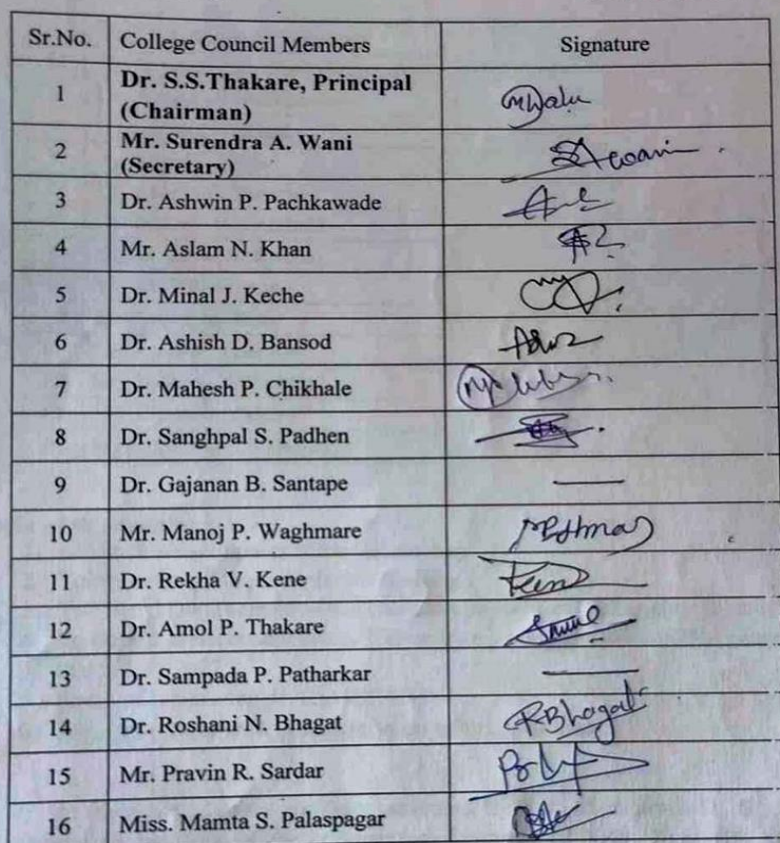 Sr.No. College Council Members Signature
1 Dr. S.S.Thakare, Principal
(Chairman)
2 Mr. Surendra A. Wani
(Secretary)
3 Dr. Ashwin P. Pachkawade
4 Mr. Aslam N. Khan
5 Dr. Minal J. Keche
6 Dr. Ashish D. Bansod
7 Dr. Mahesh P. Chikhale
8 Dr. Sanghpal S. Padhen
9 Dr. Gajanan B. Santape —
10 Mr. Manoj P. Waghmare
11 Dr. Rekha V. Kene
12 Dr. Amol P. Thakare
13 Dr. Sampada P. Patharkar —
14 Dr. Roshani N. Bhagat RBhagat
15 Mr. Pravin R. Sardar
16 Miss. Mamta S. Palaspagar